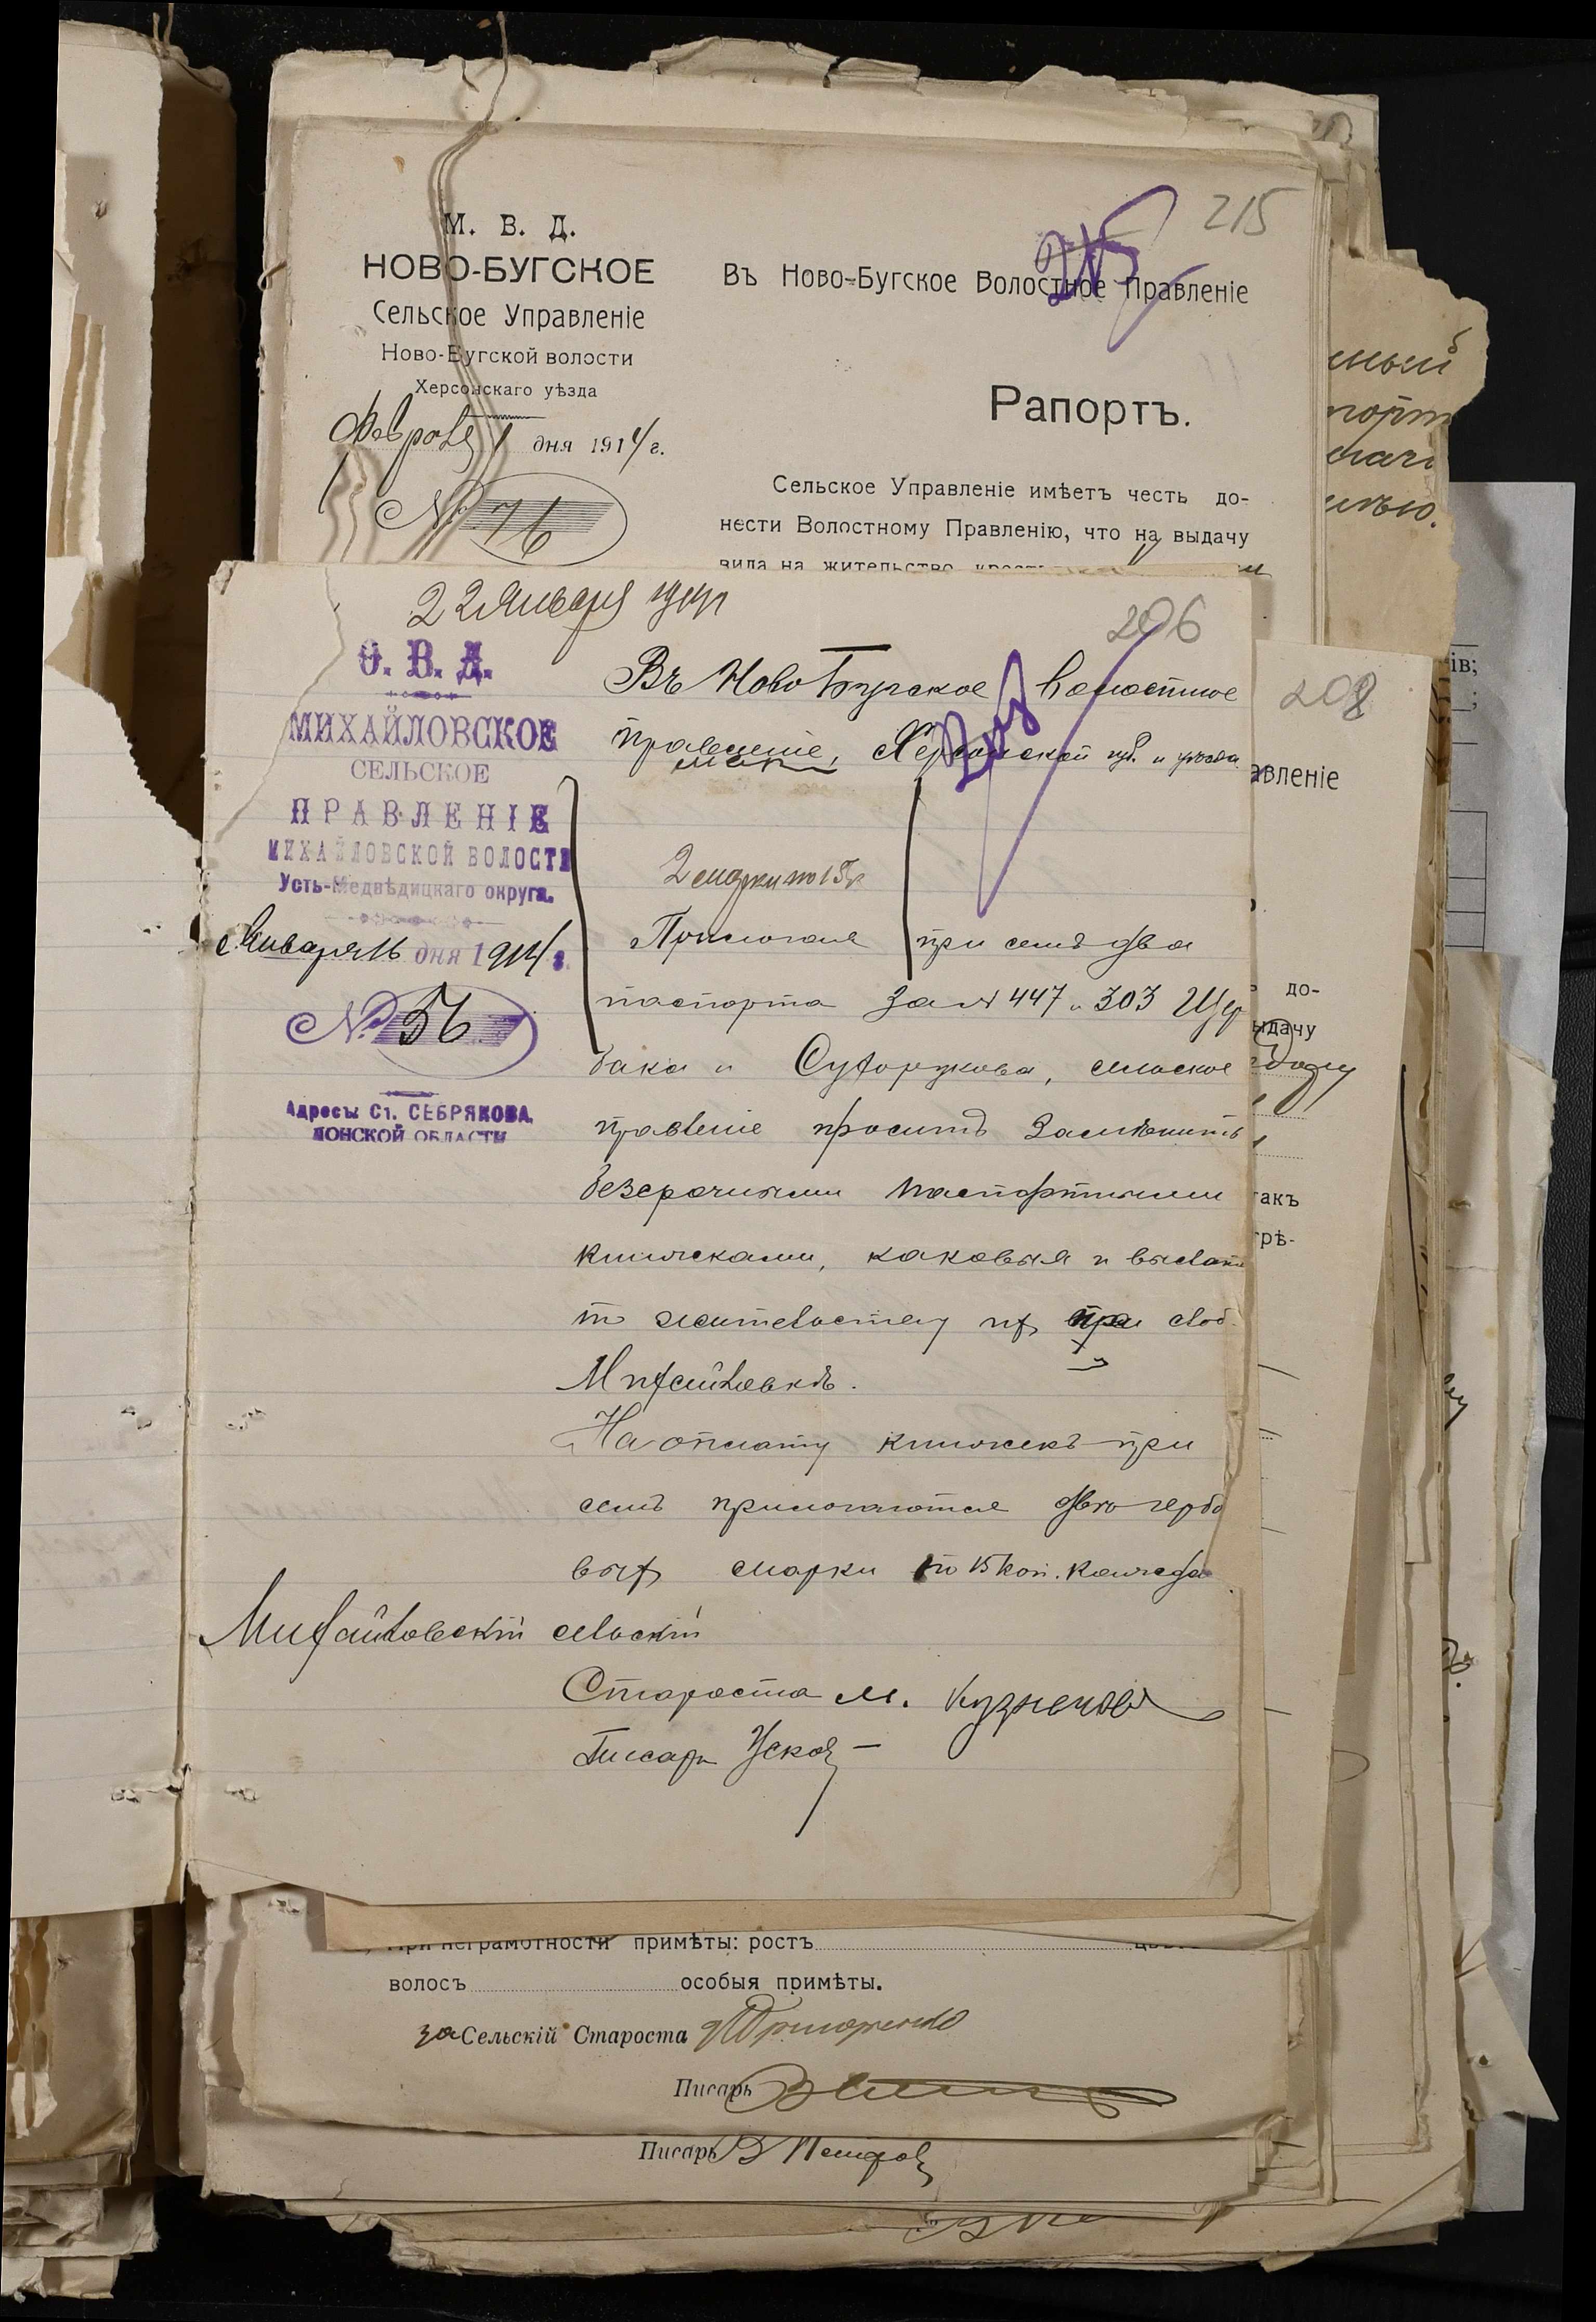 215
М. В. Д.
НОВО-БУГСКОЕ
Сельское Управленіе
Ново-Бугской волости
Херсонскаго уѣзда
Февраля 1 дня 1914 г.
№ 76
Въ Ново-Бугское Волостное Правленіе
Рапортъ.
Сельское Управленіе имѣетъ честь до-
нести Волостному Правленію, что на выдачу
вида на жительство
22 Января 1914 г
206
О. В. Д.
МИХАЙЛОВСКОЕ
СЕЛЬСКОЕ
ПРАВЛЕНІЕ
МИХАЙЛОВСКОЙ ВОЛОСТИ
Усть-Медвѣдицкаго округа.
Января 16 дня 1914 г.
№ 56
Адресъ: Ст. СЕБРЯКОВА,
ДОНСКОЙ ОБЛАСТИ
Въ Ново Бугское Волостное
правленіе, Херсонской губ. и уѣзда
2 марки по 15 к
Прилогая при семъ два
паспорта за № 447 и 303 Щер
бака и Суворукова, сельское
правленіе проситъ замѣнить
безсрочными паспортными
книжками, каковыя и выслать
по жительству их при слоб.
Михайловкѣ.
На оплату книжекъ при
семъ прилогаются двѣ гербо
вых марки по 15 коп. каждая
Михайловскій сельскій
Староста М. Кузнецовъ
Писарь Усков
208
авленіе
до-
ыдачу
акъ
рѣ-
ный
порт
При неграмотности примѣты: ростъ
волосъ особыя примѣты.
за Сельскій Староста
Писарь
Писарь В Петров